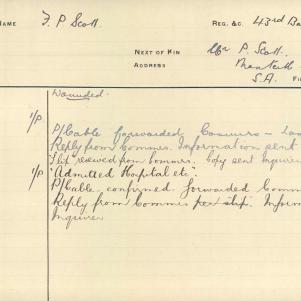 NAME F. P. Scott. REG. &C. 43rd Ba
NEXT OF KIN Mr P. Scott.
ADDRESS
S.A. FI
Wounded.
1/P.
P/Cable forwarded Commrs -
Reply from Commrs. Information sent
Slip received from Commrs. Copy sent Inquirer
1/P. "Admitted Hospital etc".
P/Cable confirmed. Forwarded Comm
Reply from Commrs per slip. Inform
Inquirer